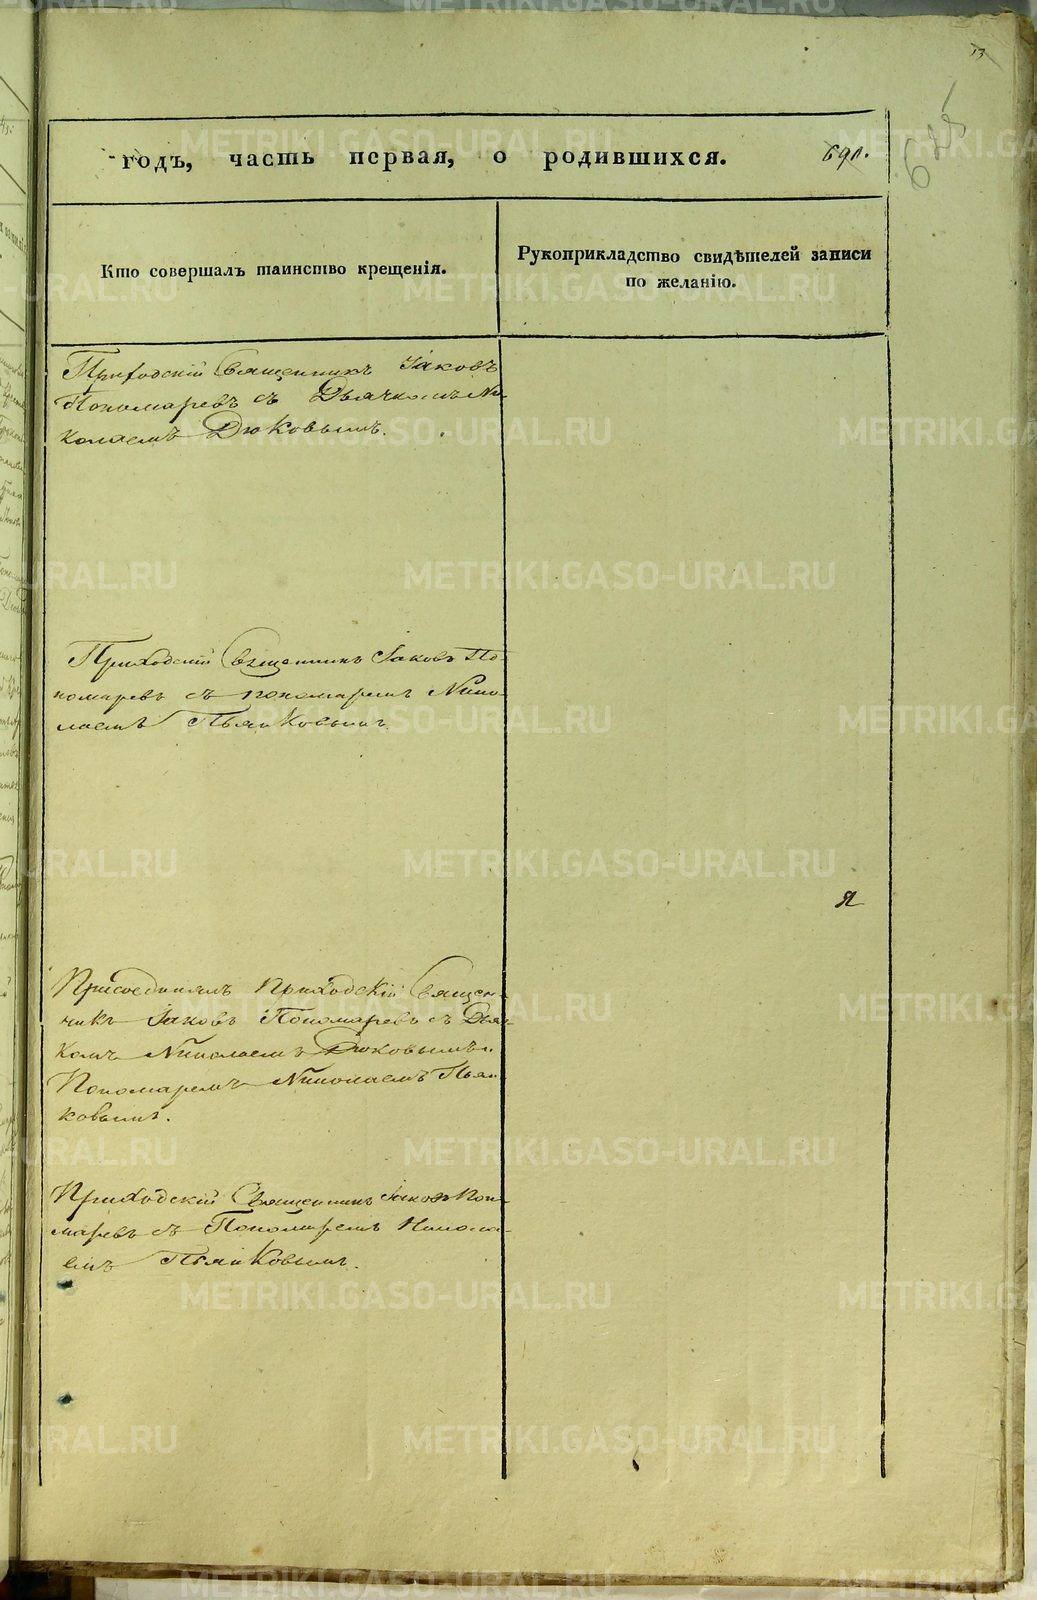 13
625
годъ, часть первая, о родившихся. 690.
Кто совершалъ таинство крещенія.
Рукоприкладство свидѣтелей записи
по желанію.
Приходскій Священникъ Іаковъ
Пономаревъ съ Дьячкомъ Ни-
колаемъ Дюковымъ.
Приходскій Священникъ Іаковъ По-
номаревъ съ пономаремъ Нико-
лаемъ Пьянковымъ
Я
Присоединялъ Приходскій Священ-
никъ Іаковъ Пономаревъ съ Дья-
комъ Николаемъ Дюковымъ и
Пономаремъ Николаемъ Пьян-
ковымъ.
Приходскій Священникъ Іаковъ Поно-
маревъ съ Пономаремъ Никола-
емъ Пьянковымъ.
METRIKI.GASO-URAL.RU